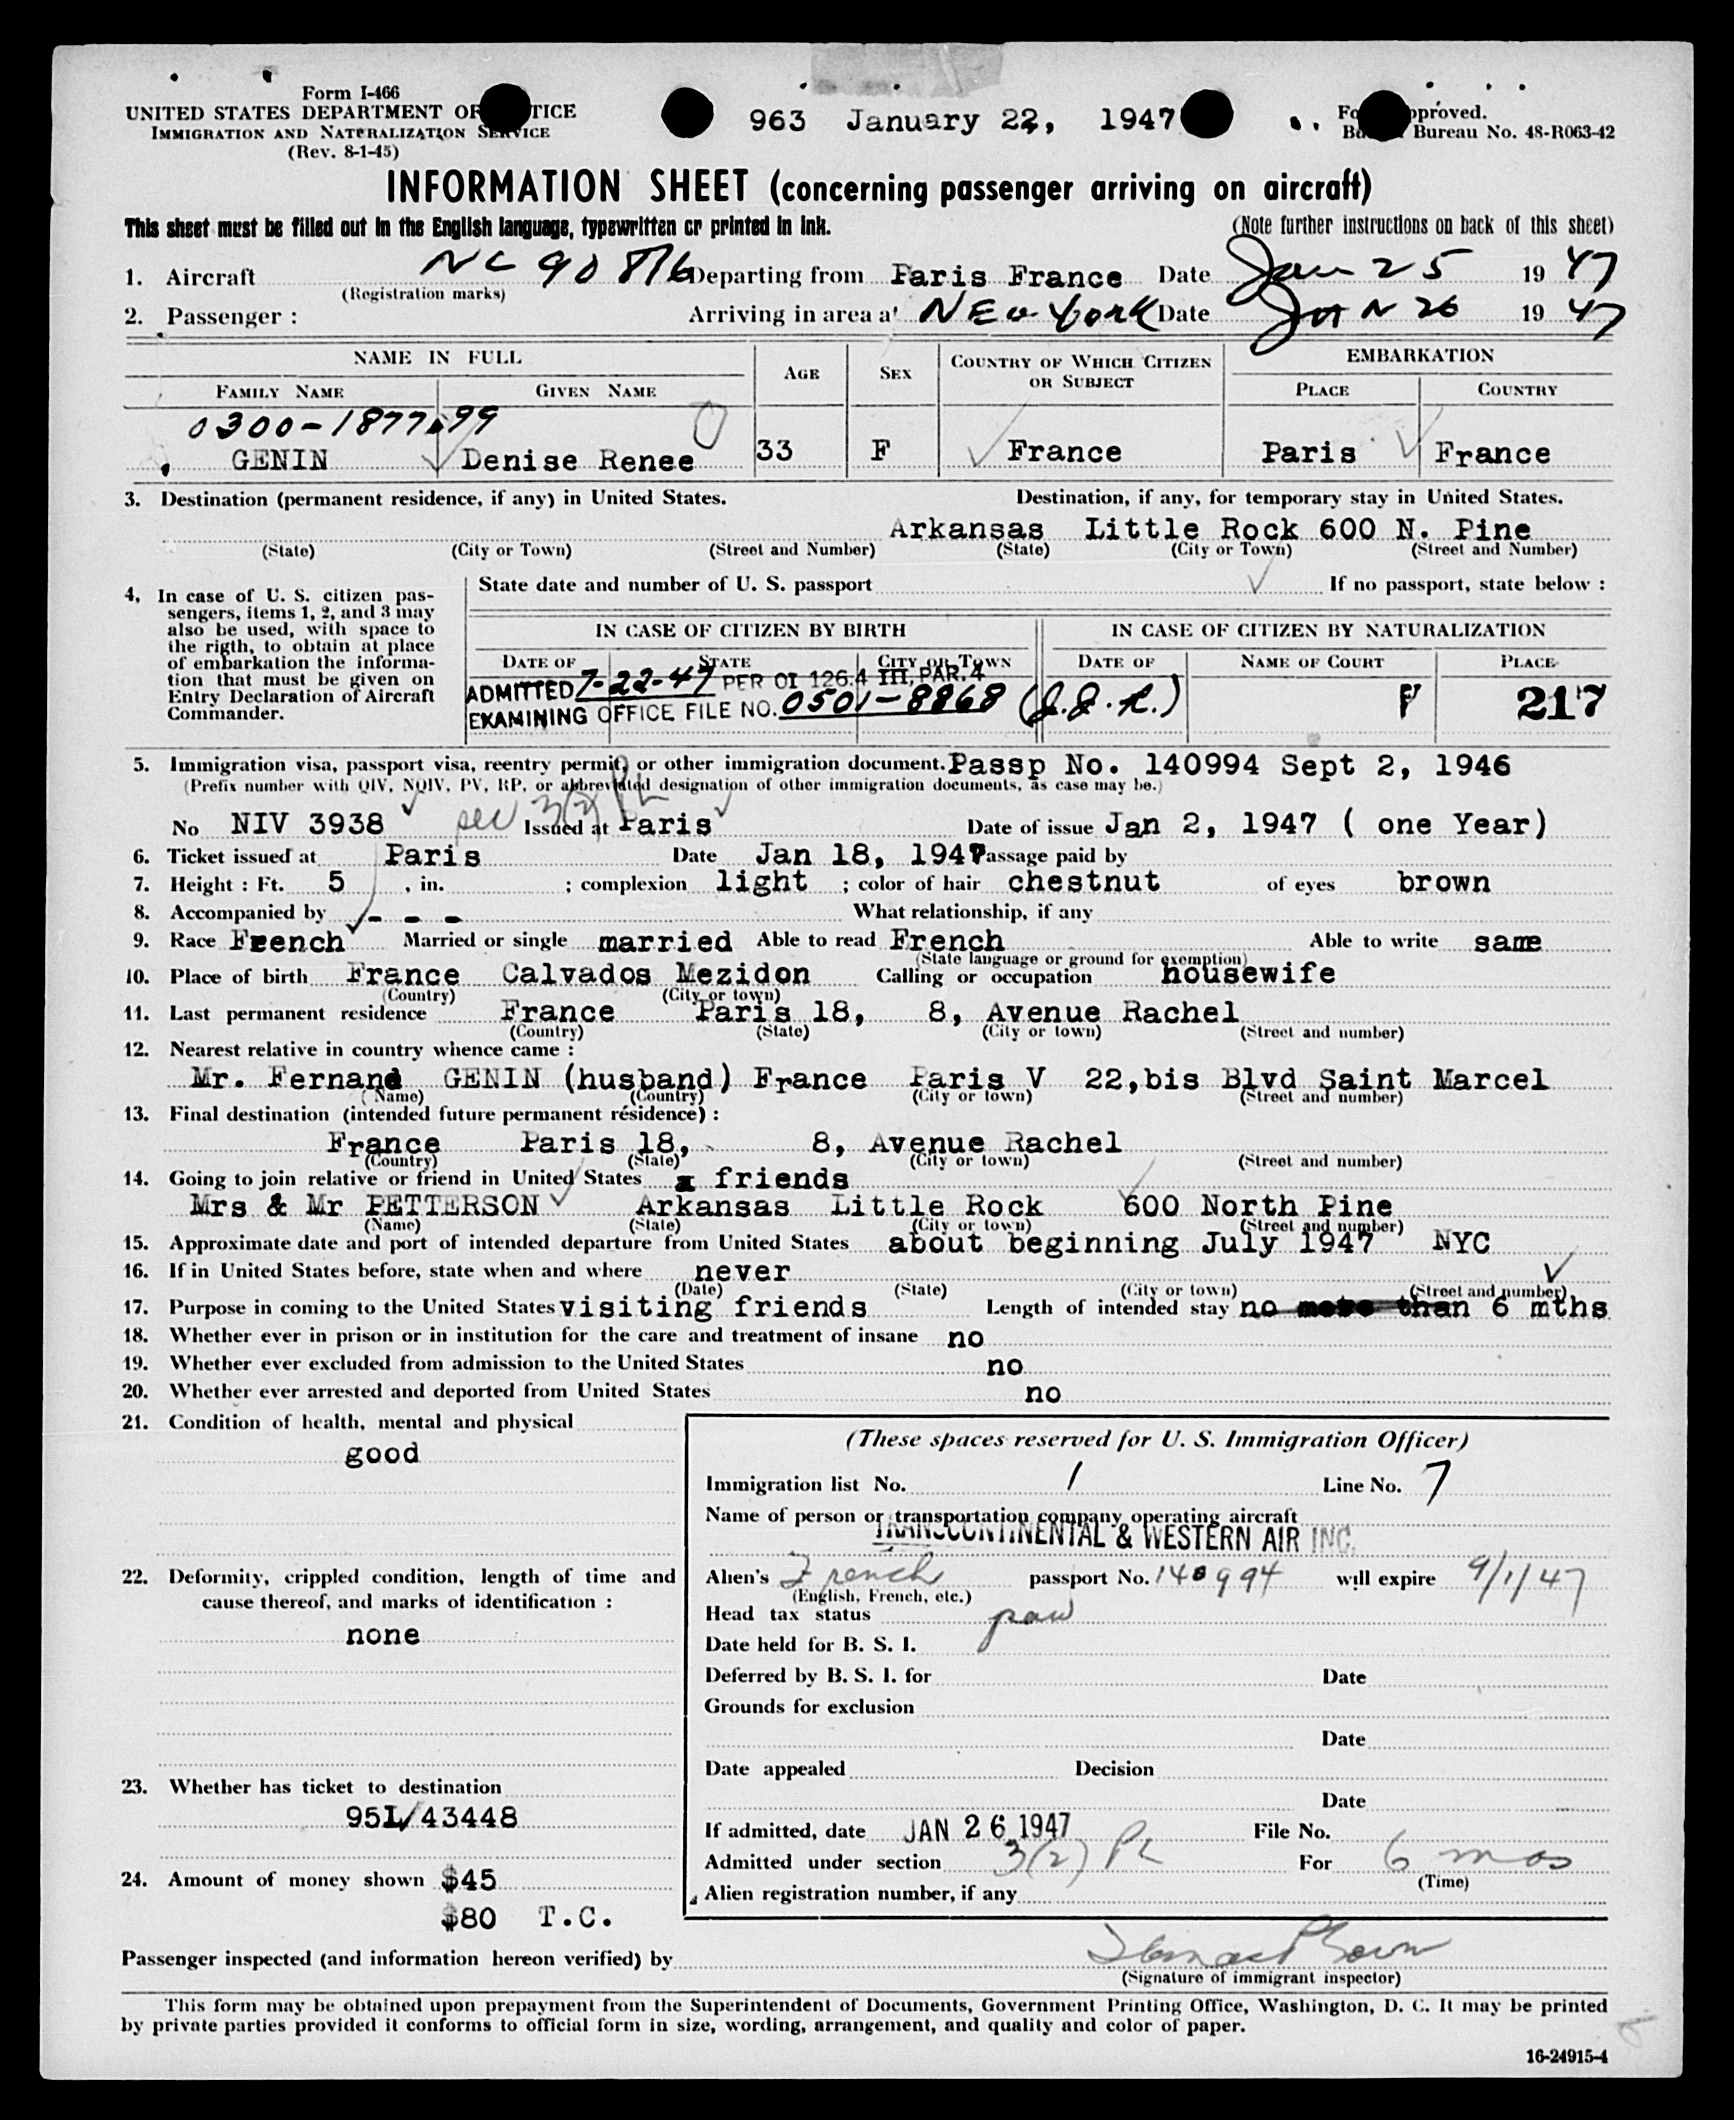 Form I-466
UNITED STATES DEPARTMENT OF JUSTICE
IMMIGRATION AND NATURALIZATION SERVICE
(Rev. 8-1-45)
963 January 22, 1947
Form approved.
Budget Bureau No. 48-R063-42
INFORMATION SHEET (concerning passenger arriving on aircraft)
This sheet must be filled out in the English language, typewritten or printed in ink. (Note further instructions on back of this sheet)
1. Aircraft NC 90816 Departing from Paris France Date Jan 25 19 47
(Registration marks)
2. Passenger : Arriving in area at NEw York Date JAN 26 19 47
NAME IN FULL AGE SEX COUNTRY OF WHICH CITIZEN OR SUBJECT EMBARKATION
FAMILY NAME GIVEN NAME PLACE COUNTRY
0300-1877.99
GENIN Denise Renee 33 F France Paris France
3. Destination (permanent residence, if any) in United States. Destination, if any, for temporary stay in United States.
Arkansas Little Rock 600 N. Pine
(State) (City or Town) (Street and Number) (State) (City or Town) (Street and Number)
4, In case of U. S. citizen passengers, items 1, 2, and 3 may also be used, with space to the rigth, to obtain at place of embarkation the information that must be given on Entry Declaration of Aircraft Commander.
State date and number of U. S. passport If no passport, state below :
IN CASE OF CITIZEN BY BIRTH IN CASE OF CITIZEN BY NATURALIZATION
DATE OF STATE CITY OR TOWN DATE OF NAME OF COURT PLACE
ADMITTED 7-22-47 PER OI 126.4 III, PAR. 4
EXAMINING OFFICE FILE NO. 0501-8868 (J.J.R.) F 217
5. Immigration visa, passport visa, reentry permit, or other immigration document. Passp No. 140994 Sept 2, 1946
(Prefix number with QIV, NQIV, PV, RP, or abbreviated designation of other immigration documents, as case may be.)
No NIV 3938 sec 3(2) PL Issued at Paris Date of issue Jan 2, 1947 ( one Year)
6. Ticket issued at Paris Date Jan 18, 1947 Passage paid by
7. Height : Ft. 5 , in. ; complexion light ; color of hair chestnut of eyes brown
8. Accompanied by - - - What relationship, if any
9. Race French Married or single married Able to read French Able to write same
(State language or ground for exemption)
10. Place of birth France Calvados Mezidon Calling or occupation housewife
(Country) (City or town)
11. Last permanent residence France Paris 18, 8, Avenue Rachel
(Country) (State) (City or town) (Street and number)
12. Nearest relative in country whence came :
Mr. Fernand GENIN (husband) France Paris V 22,bis Blvd Saint Marcel
(Name) (Country) (City or town) (Street and number)
13. Final destination (intended future permanent résidence) :
France Paris 18, 8, Avenue Rachel
(Country) (State) (City or town) (Street and number)
14. Going to join relative or friend in United States friends
Mrs & Mr PETTERSON Arkansas Little Rock 600 North Pine
(Name) (State) (City or town) (Street and number)
15. Approximate date and port of intended departure from United States about beginning July 1947 NYC
16. If in United States before, state when and where never
(Date) (State) (City or town) (Street and number)
17. Purpose in coming to the United States visiting friends Length of intended stay no more than 6 mths
18. Whether ever in prison or in institution for the care and treatment of insane no
19. Whether ever excluded from admission to the United States no
20. Whether ever arrested and deported from United States no
21. Condition of health, mental and physical
good
(These spaces reserved for U. S. Immigration Officer)
Immigration list No. 1 Line No. 7
Name of person or transportation company operating aircraft
TRANSCONTINENTAL & WESTERN AIR INC.
22. Deformity, crippled condition, length of time and cause thereof, and marks of identification :
none
Alien's French passport No. 140994 will expire 9/1/47
(English, French, etc.)
Head tax status
Date held for B. S. I.
Deferred by B. S. I. for Date
Grounds for exclusion
Date
Date appealed Decision
Date
23. Whether has ticket to destination
951/43448
If admitted, date JAN 26 1947 File No.
Admitted under section 3(2) PL For 6 mos
(Time)
Alien registration number, if any
24. Amount of money shown $45
$80 T.C.
Passenger inspected (and information hereon verified) by
(Signature of immigrant inspector)
This form may be obtained upon prepayment from the Superintendent of Documents, Government Printing Office, Washington, D. C. It may be printed
by private parties provided it conforms to official form in size, wording, arrangement, and quality and color of paper.
16-24915-4